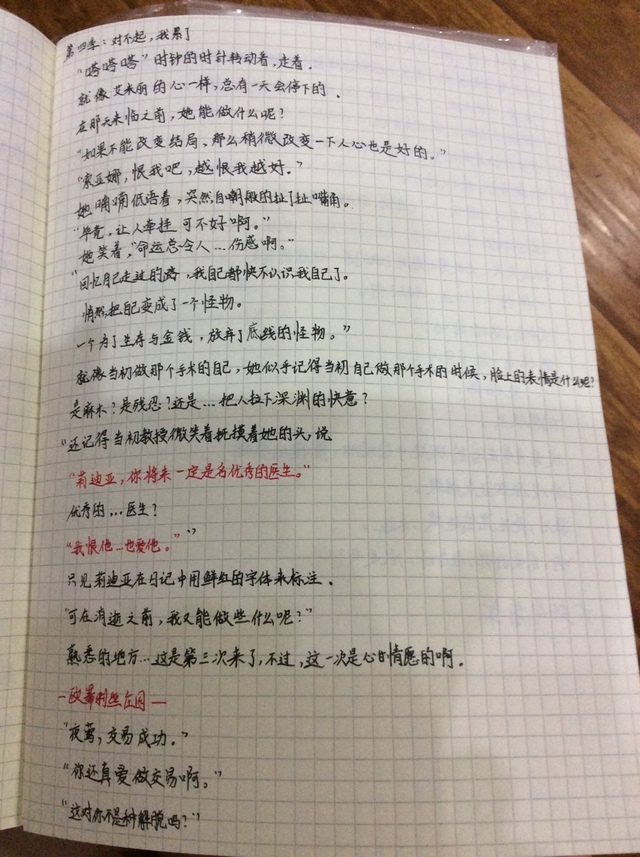 第四季：对不起，我累了
“嗒嗒嗒”时钟的时针转动着，走着．
就像艾米丽的心一样，总有一天会停下的．
在那天来临之前，她能做什么呢？
“如果不能改变结局，那么稍微改变一下人心也是好的。”
“索亚娜，恨我吧，越恨我越好．”
她喃喃低语着，突然自嘲般的扯了扯嘴角。
“毕竟，让人牵挂 可不好啊。”
她笑着，“命运总令人…伤感啊。”
“回忆自己走过的路，我自己都快不认识我自己了。
悄然把自己变成了一个怪物。
一个为了生存与金钱，放弃了底线的怪物。”
就像当初做那个手术的自己，她似乎记得当初自己做那个手术的时候，脸上的表情是什么呢？
是麻木？是残忍？还是…把人拉下深渊的快意？
“还记得当初教授微笑着抚摸着她的头，说
“莉迪亚，你将来一定是名优秀的医生。”
优秀的…医生？
“我恨他…也爱他。””
只见莉迪亚在日记中用鲜红的字体来标注．
“可在消逝之前，我又能做些什么呢？”
熟悉的地方…这是第三次来了，不过，这一次是心甘情愿的啊．
—欧蒂利丝庄园—
“夜莺，交易成功．”
“你还真爱做交易啊。”
“这对你不是种解脱吗？”